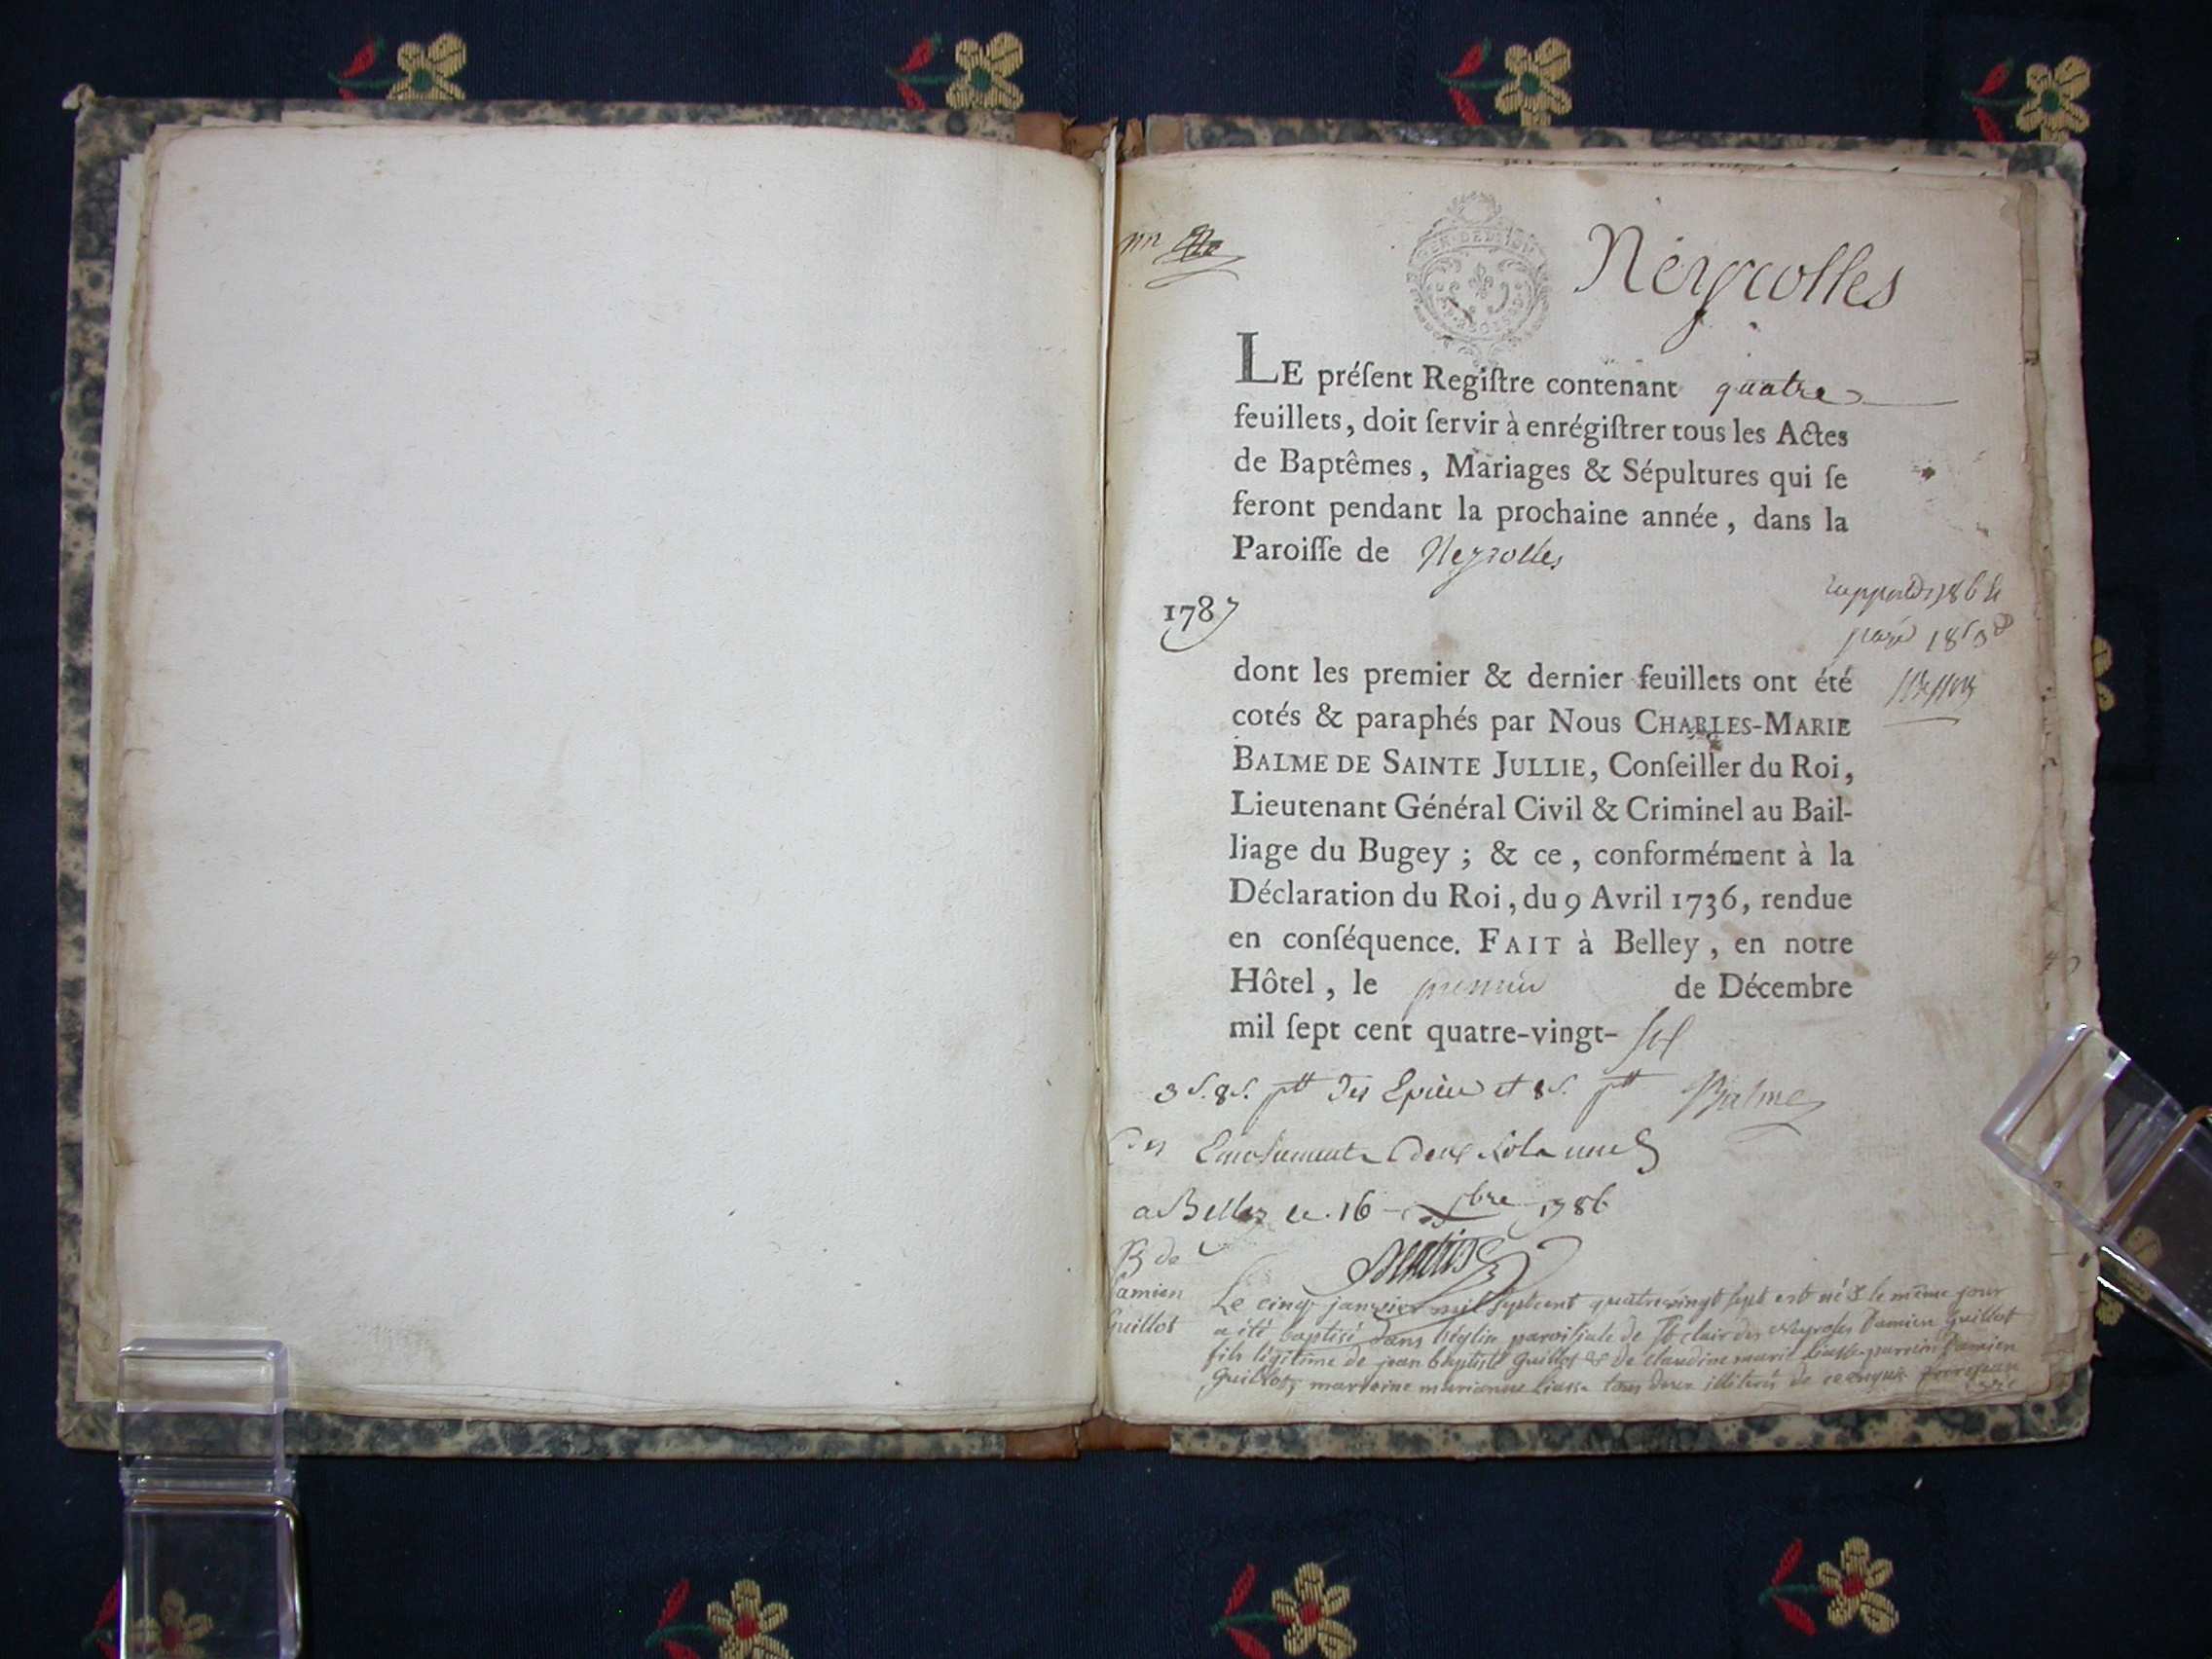 Neyrolles
LE préſent Regiſtre contenant quatre
feuillets, doit ſervir à enrégiſtrer tous les Actes
de Baptêmes, Mariages & Sépultures qui ſe
feront pendant la prochaine année, dans la
Paroiſſe de Neyrolles
1787
dont les premier & dernier feuillets ont été
cotés & paraphés par Nous CHARLES-MARIE
BALME DE SAINTE JULLIE, Conſeiller du Roi,
Lieutenant Général Civil & Criminel au Bail-
liage du Bugey ; & ce, conformément à la
Déclaration du Roi, du 9 Avril 1736, rendue
en conſéquence. FAIT à Belley, en notre
Hôtel, le premier de Décembre
mil ſept cent quatre-vingt-
Balme
a Belley le 16 1786
B de
Damien
Guillot
Le cinq janvier mil septcent quatrevingt sept est né & le même jour
a été baptisé dans l'église paroisiale de St clair des Neyroles Damien Guillot
fils légitime de jean baptiste Guillot & de claudine marie parrein Damien
Guillot, marreine marianne tous deux illiterés de ce enquis